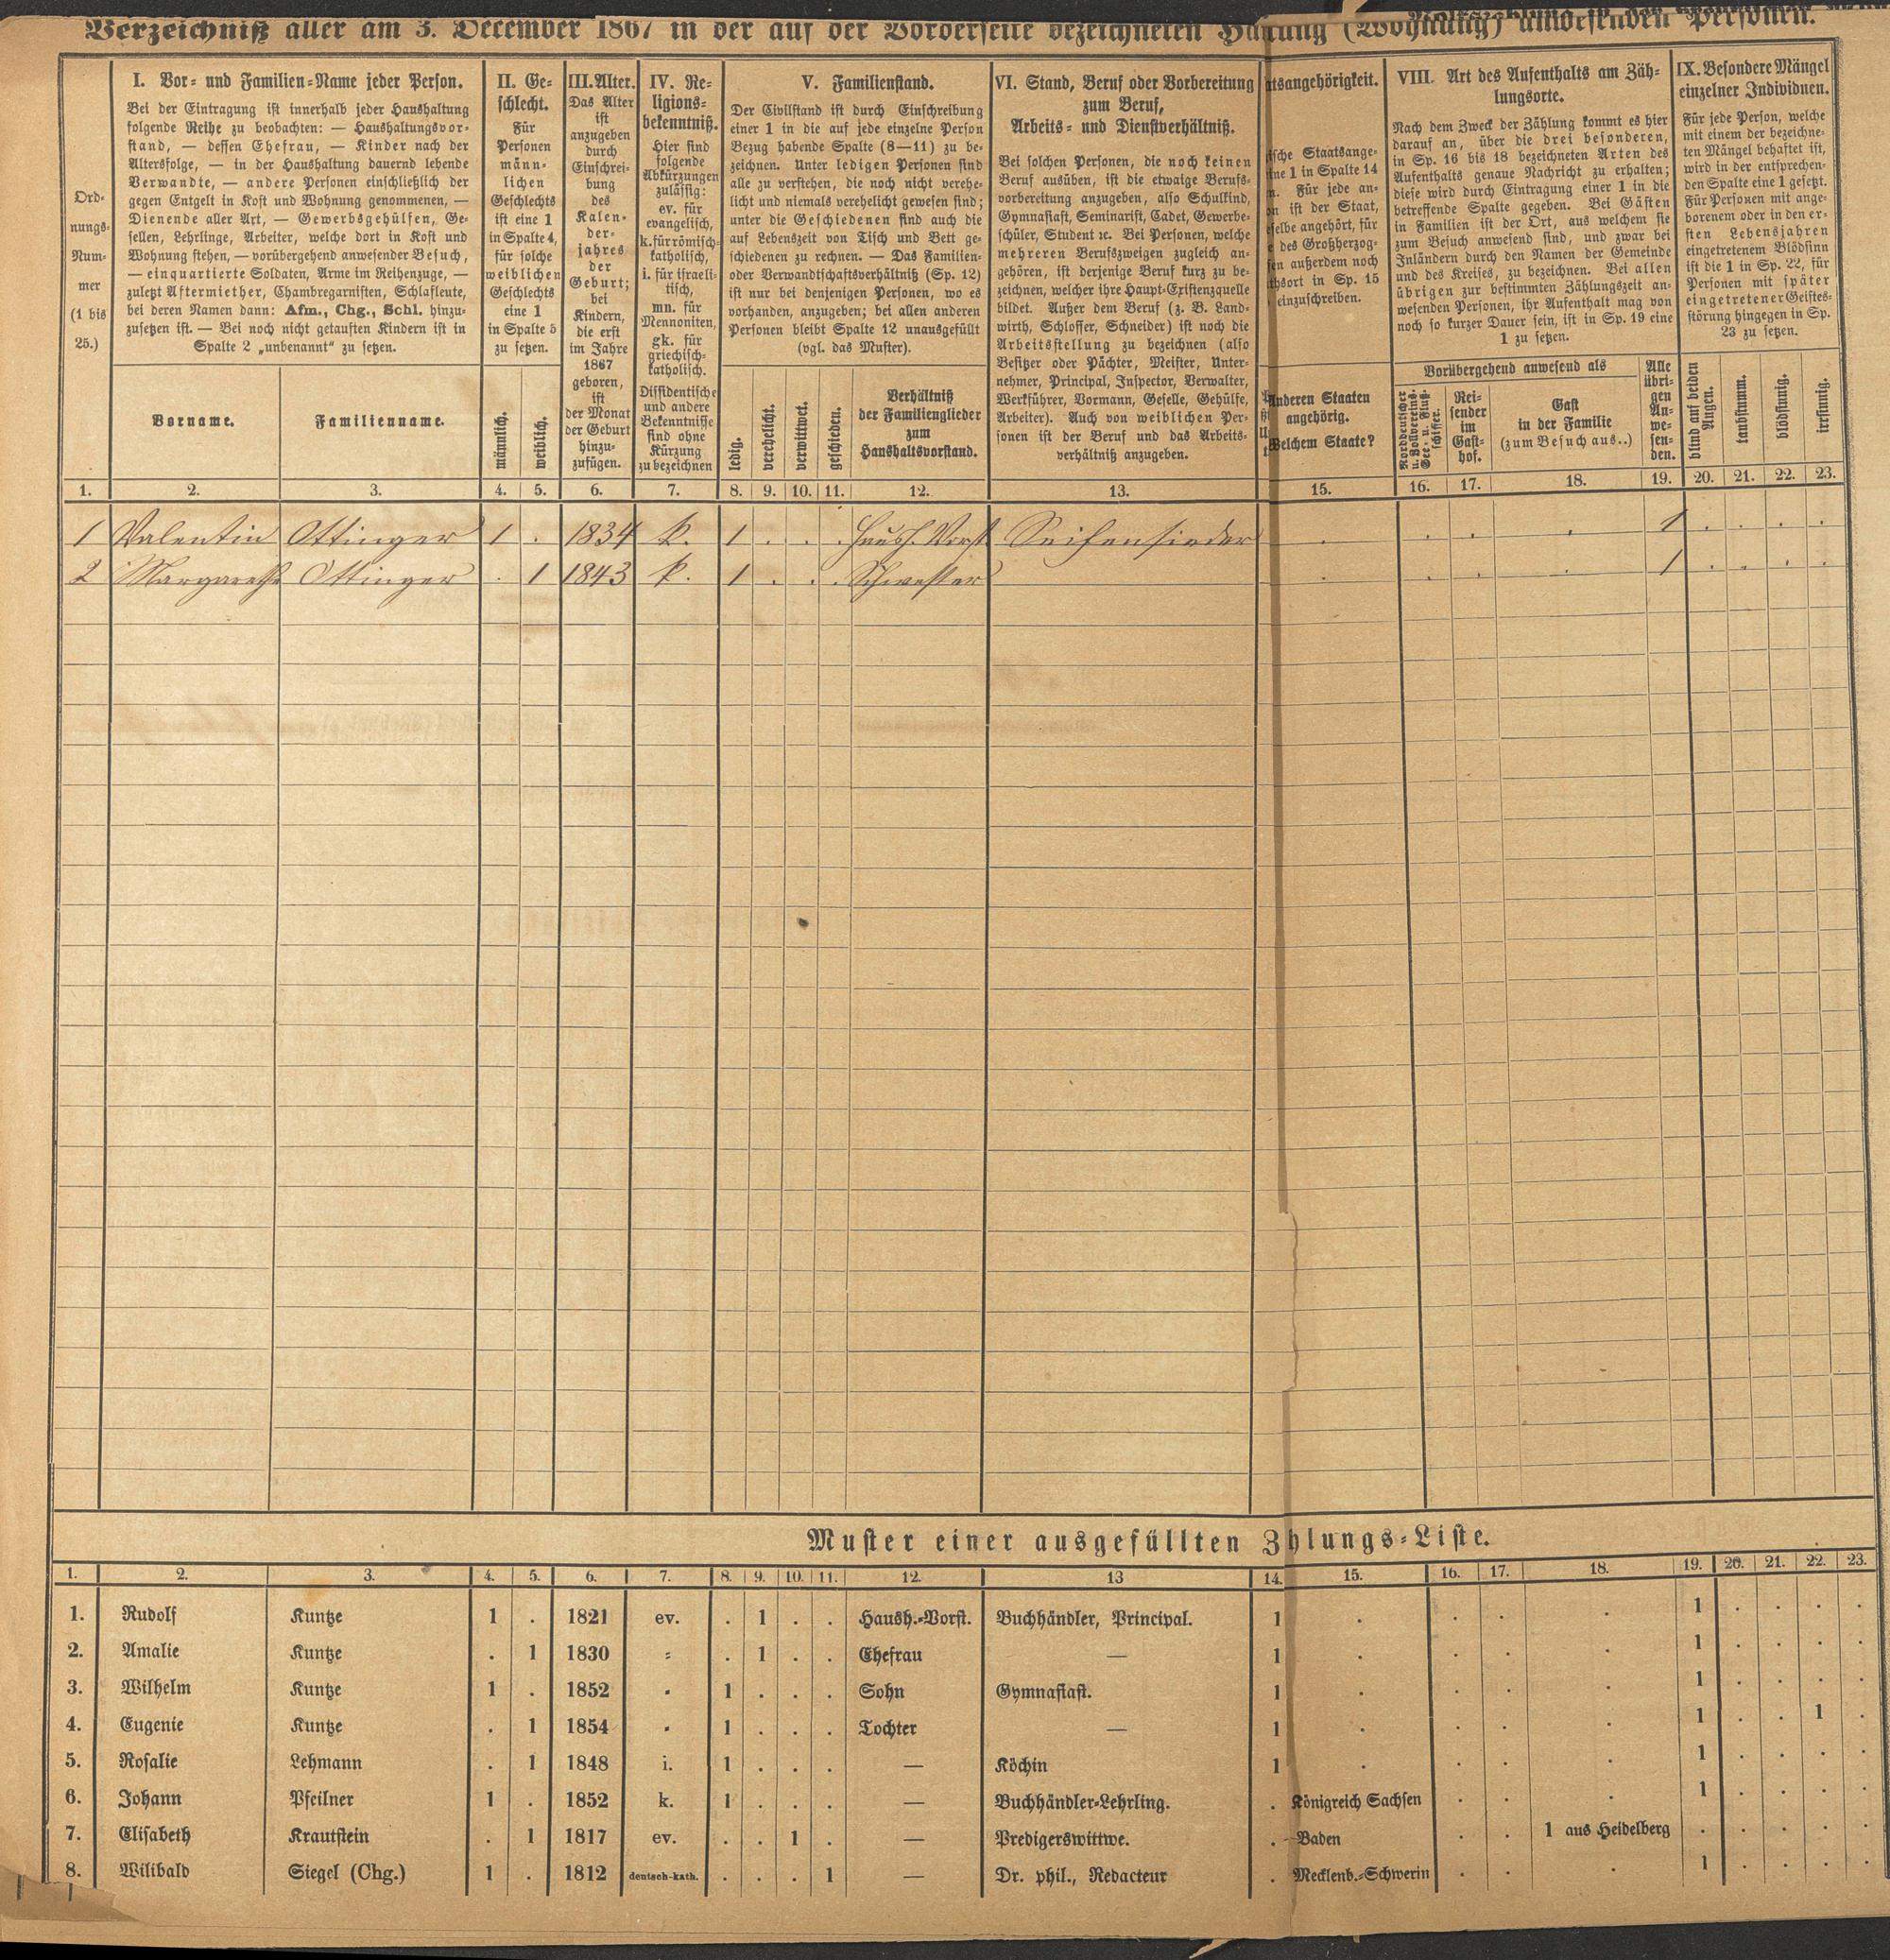 Verzeichniß aller am 3. December 1867 in der auf der Vorderseite bezeichneten (Wohnung) anwesenden Personen.
Ord-
nungs-
Num-
mer
(1 bis
25.)
I. Vor- und Familien-Name jeder Person.
Bei der Eintragung ist innerhalb jeder Haushaltung
folgende Reihe zu beobachten: — Haushaltungsvor-
stand, — dessen Ehefrau, — Kinder nach der
Altersfolge, — in der Haushaltung dauernd lebende
Verwandte, — andere Personen einschließlich der
gegen Entgelt in Kost und Wohnung genommenen, —
Dienende aller Art, — Gewerbsgehülfen, Ge-
sellen, Lehrlinge, Arbeiter, welche dort in Kost und
Wohnung stehen, — vorübergehend anwesender Besuch,
— einquartierte Soldaten, Arme im Reihenzuge, —
zuletzt Aftermiether, Chambregarnisten, Schlafleute,
bei deren Namen dann: Afm., Chg., Schl. hinzu-
zusetzen ist. — Bei noch nicht getauften Kindern ist in
Spalte 2 „unbenannt“ zu setzen.
Vorname.
Familienname.
II. Ge-
schlecht.
Für
Personen
männ-
lichen
Geschlechts
ist eine 1
in Spalte 4,
für solche
weiblichen
Geschlechts
eine 1
in Spalte 5
zu setzen.
männlich.
weiblich.
III. Alter.
Das Alter
ist
anzugeben
durch
Einschrei-
bung
des
Kalen-
der-
jahres
der
Geburt;
bei
Kindern,
die erst
im Jahre
1867
geboren,
ist
der Monat
der Geburt
hinzu-
zufügen.
IV. Re-
ligions-
bekenntniß.
Hier sind
folgende
Abkürzungen
zulässig:
ev. für
evangelisch,
k. für römisch-
katholisch,
i. für israeli-
tisch,
mn. für
Mennoniten,
gk. für
griechisch-
katholisch.
Dissidentische
und andere
Bekenntnisse
sind ohne
Kürzung
zu bezeichnen
V. Familienstand.
Der Civilstand ist durch Einschreibung
einer 1 in die auf jede einzelne Person
Bezug habende Spalte (8—11) zu be-
zeichnen. Unter ledigen Personen sind
alle zu verstehen, die noch nicht verehe-
licht und niemals verehelicht gewesen sind;
unter die Geschiedenen sind auch die
auf Lebenszeit von Tisch und Bett ge-
schiedenen zu rechnen. — Das Familien-
oder Verwandtschaftsverhältniß (Sp. 12)
ist nur bei denjenigen Personen, wo es
vorhanden, anzugeben; bei allen anderen
Personen bleibt Spalte 12 unausgefüllt
(vgl. das Muster).
ledig.
verehelicht.
verwittwet.
geschieden.
Verhältniß
der Familienglieder
zum
Haushaltsvorstand.
VI. Stand, Beruf oder Vorbereitung
zum Beruf,
Arbeits- und Dienstverhältniß.
Bei solchen Personen, die noch keinen
Beruf ausüben, ist die etwaige Berufs-
vorbereitung anzugeben, also Schulkind,
Gymnasiast, Seminarist, Cadet, Gewerbe-
schüler, Student ꝛc. Bei Personen, welche
mehreren Berufszweigen zugleich an-
gehören, ist derjenige Beruf kurz zu be-
zeichnen, welcher ihre Haupt-Existenzquelle
bildet. Außer dem Beruf (z. B. Land-
wirth, Schlosser, Schneider) ist noch die
Arbeitsstellung zu bezeichnen (also
Besitzer oder Pächter, Meister, Unter-
nehmer, Principal, Inspector, Verwalter,
Werkführer, Vormann, Geselle, Gehülfe,
Arbeiter). Auch von weiblichen Per-
sonen ist der Beruf und das Arbeits-
verhältniß anzugeben.
tsangehörigkeit.
ische Staatsange-
ine 1 in Spalte 14
n. Für jede an-
on ist der Staat,
selbe angehört, für
e des Großherzog-
en außerdem noch
thsort in Sp. 15
einzuschreiben.
Anderen Staaten
angehörig.
Welchem Staate?
VIII. Art des Aufenthalts am Zäh-
lungsorte.
Nach dem Zweck der Zählung kommt es hier
darauf an, über die drei besonderen,
in Sp. 16 bis 18 bezeichneten Arten des
Aufenthalts genaue Nachricht zu erhalten;
diese wird durch Eintragung einer 1 in die
betreffende Spalte gegeben. Bei Gästen
in Familien ist der Ort, aus welchem sie
zum Besuch anwesend sind, und zwar bei
Inländern durch den Namen der Gemeinde
und des Kreises, zu bezeichnen. Bei allen
übrigen zur bestimmten Zählungszeit an-
wesenden Personen, ihr Aufenthalt mag von
noch so kurzer Dauer sein, ist in Sp. 19 eine
1 zu setzen.
Vorübergehend anwesend als
Norddeutscher
u. Zollvereins-
See- u. Fluß-
schiffer.
Rei-
sender
im
Gast-
hof.
Gast
in der Familie
(zum Besuch aus..)
Alle
übri-
gen
An-
we-
sen-
den.
IX. Besondere Mängel
einzelner Individuen.
Für jede Person, welche
mit einem der bezeichne-
ten Mängel behaftet ist,
wird in der entsprechen-
den Spalte eine 1 gesetzt.
Für Personen mit ange-
borenem oder in den er-
sten Lebensjahren
eingetretenem Blödsinn
ist die 1 in Sp. 22, für
Personen mit später
eingetretener Geistes-
störung hingegen in Sp.
23 zu setzen.
blind auf beiden
Augen.
taubstumm.
blödsinnig.
irrsinnig.
1. 2. 3. 4. 5. 6. 7. 8. 9. 10. 11. 12. 13. 15. 16. 17. 18. 19. 20. 21. 22. 23.
1 Valentin Ottinger 1 . 1834 k. 1 . . . Haush. Vorst. Seifensieder . . . . 1 . . . .
2 Margarethe Ottinger . 1 1843 k. 1 . . . Schwester . . . . 1 . . . .
Muster einer ausgefüllten Zhlungs-Liste.
1. 2. 3. 4. 5. 6. 7. 8. 9. 10. 11. 12. 13 14. 15. 16. 17. 18. 19. 20. 21. 22. 23.
1. Rudolf Kuntze 1 . 1821 ev. . 1 . . Haush.-Vorst. Buchhändler, Principal. 1 . . . . 1 . . . .
2. Amalie Kuntze . 1 1830 „ . 1 . . Ehefrau — 1 . . . . 1 . . . .
3. Wilhelm Kuntze 1 . 1852 „ 1 . . . Sohn Gymnasiast. 1 . . . . 1 . . . .
4. Eugenie Kuntze . 1 1854 „ 1 . . . Tochter — 1 . . . . 1 . . 1 .
5. Rosalie Lehmann . 1 1848 i. 1 . . . — Köchin 1 . . . . 1 . . . .
6. Johann Pfeilner 1 . 1852 k. 1 . . . — Buchhändler-Lehrling. . Königreich Sachsen . . . 1 . . . .
7. Elisabeth Krautstein . 1 1817 ev. . . 1 . — Predigerswittwe. . Baden . . 1 aus Heidelberg . . . . .
8. Wilibald Siegel (Chg.) 1 . 1812 deutsch-kath. . . . 1 — Dr. phil., Redacteur . Mecklenb.-Schwerin . . . 1 . . . .